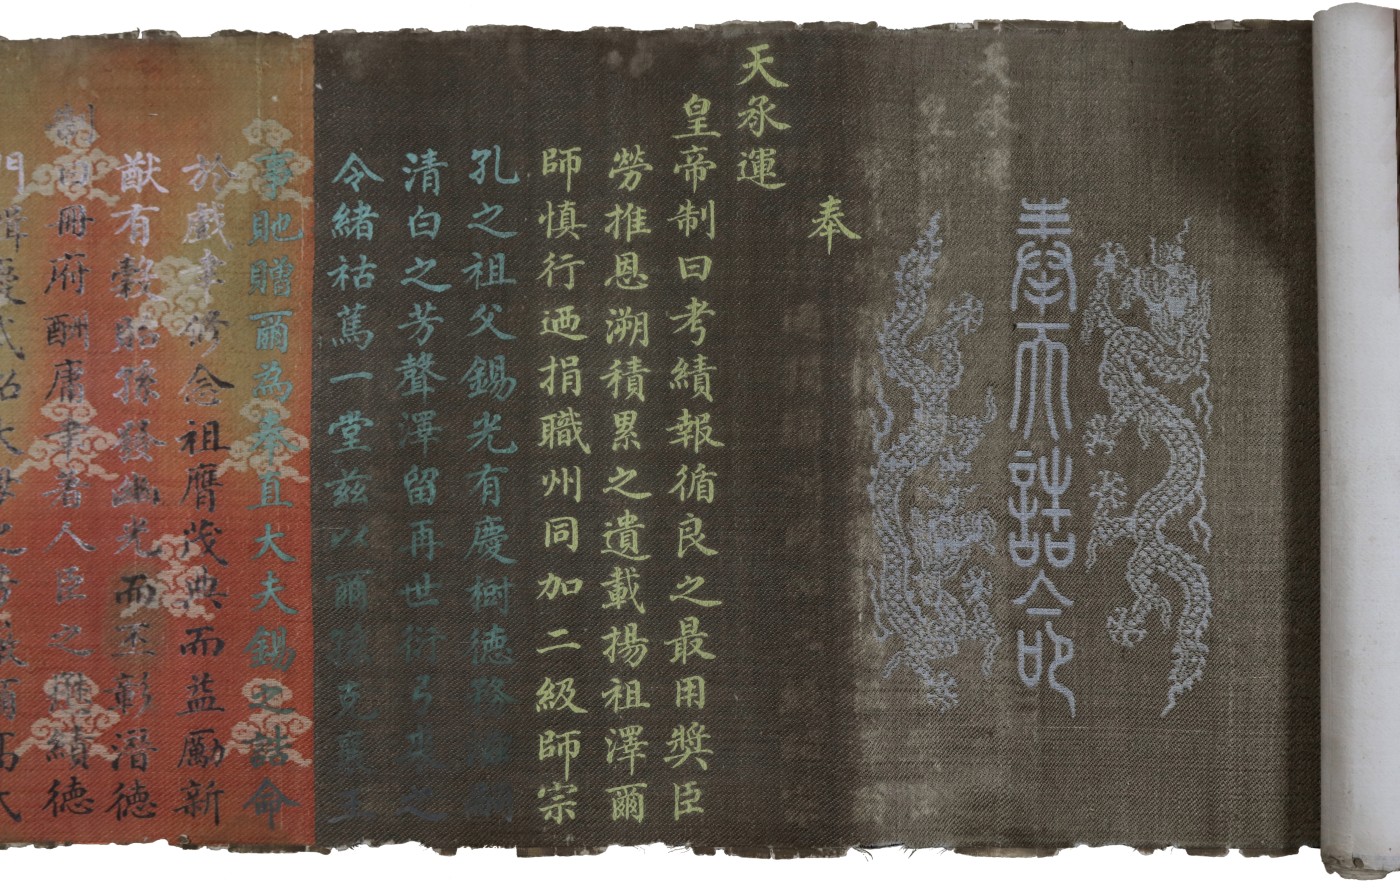 奉天誥命
奉
天承運
皇帝制曰考績報循良之最用獎臣
勞推恩溯積累之遺載揚祖澤爾
師慎行迺捐職州同加二級師宗
孔之祖父錫光有慶樹德務滋嗣
清白之芳聲澤留再世衍弓裘之
令緒祜篤一堂茲以爾孫克襄王
事貤贈爾為奉直大夫錫之誥命
於戲聿修念祖膺茂典而益勵新
猷有穀貽孫發幽光而丕彰潛德
制曰冊府酬庸聿著人臣之懋績德